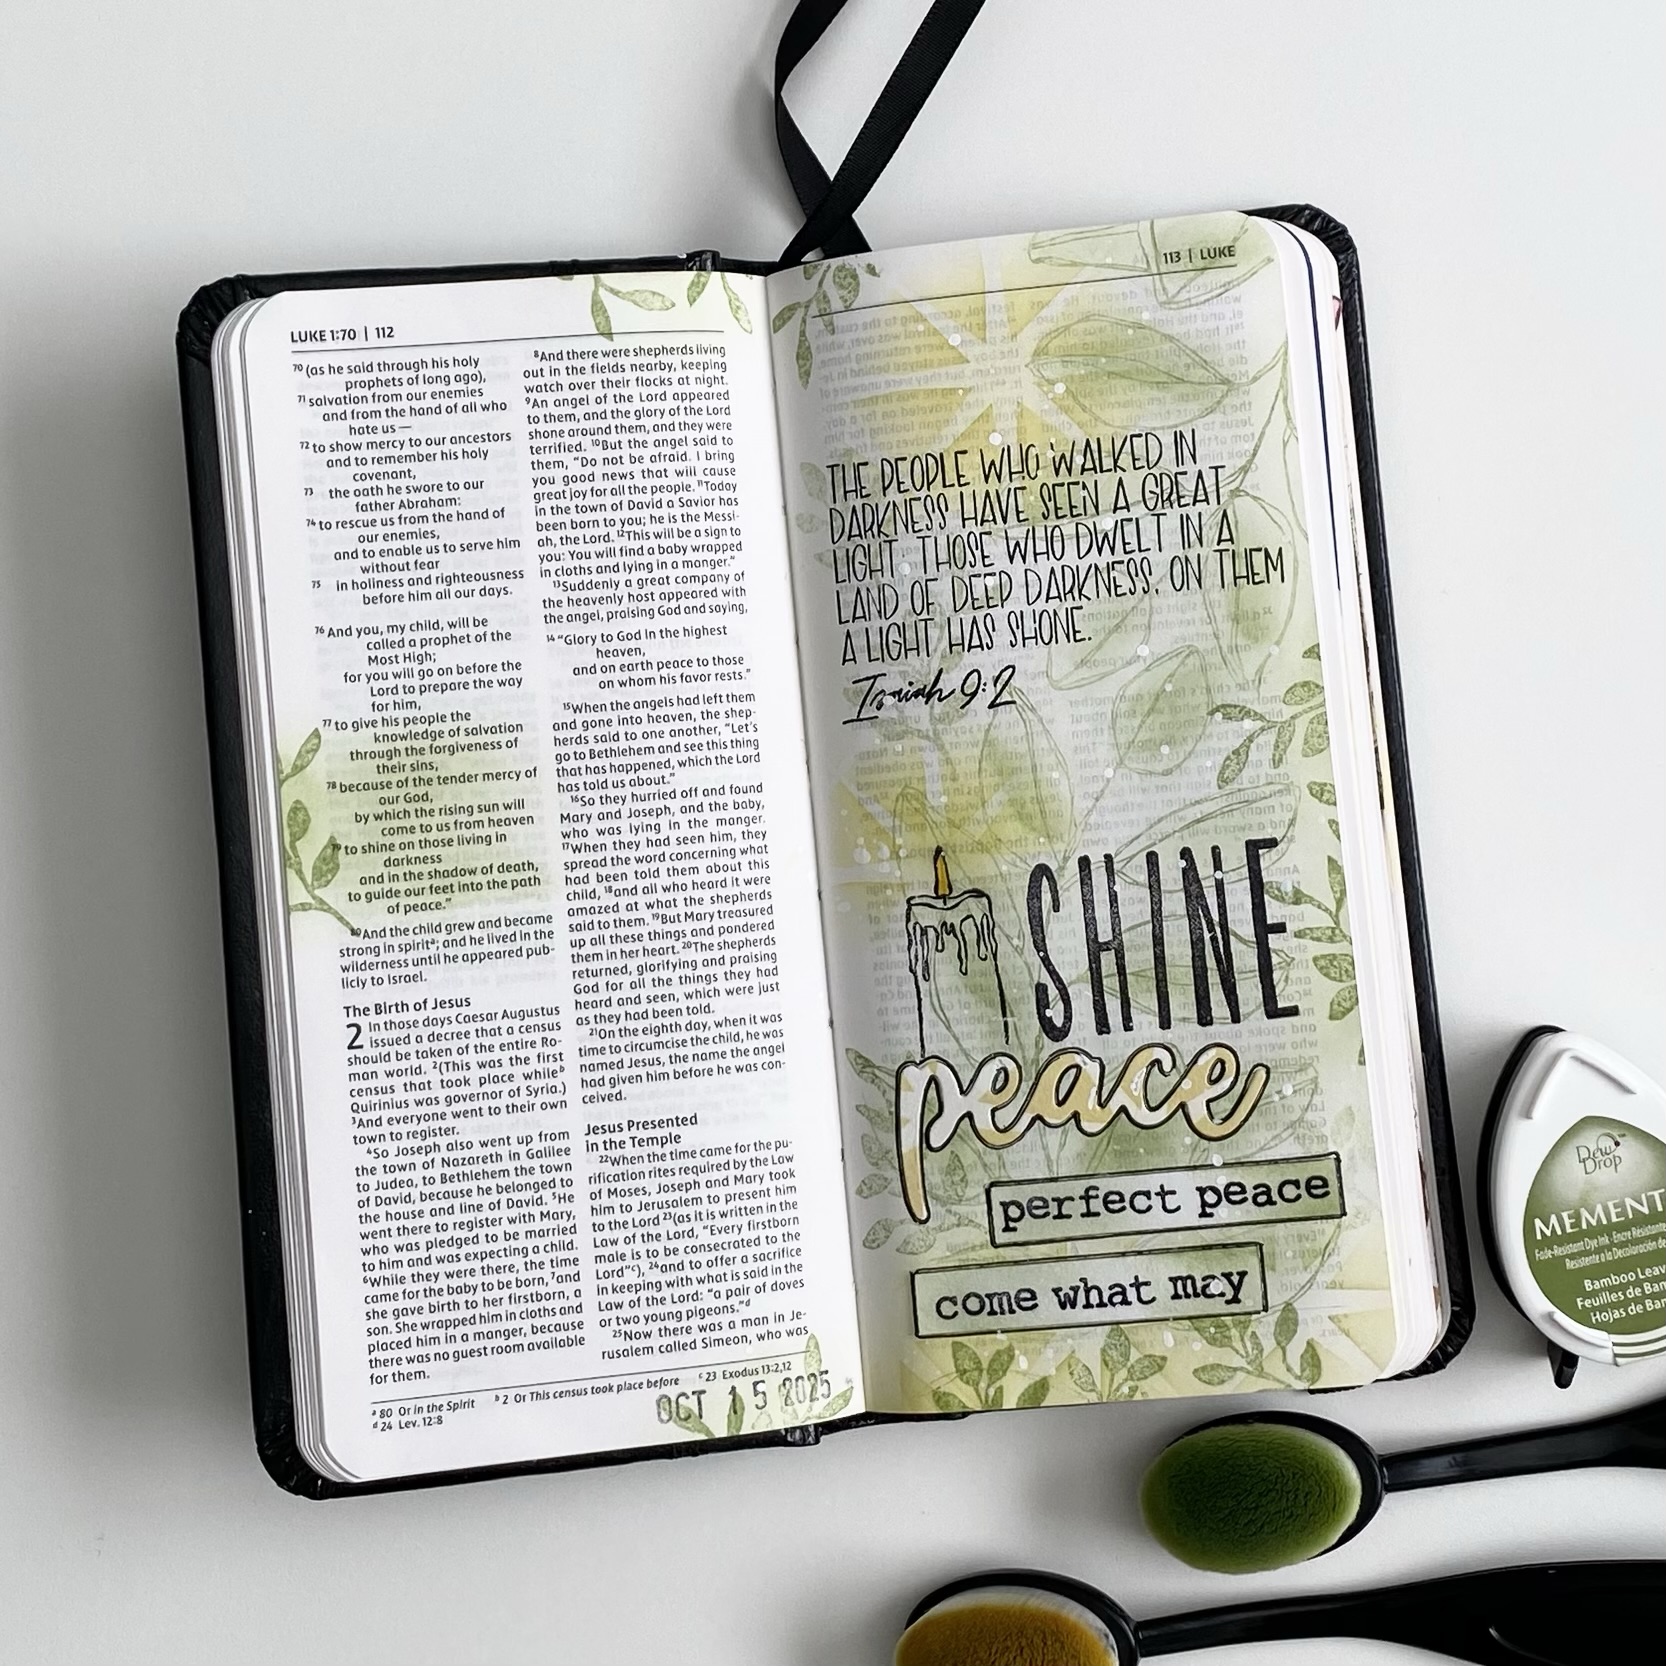 LUKE 1:70 | 112
70 (as he said through his holy
prophets of long ago),
71 salvation from our enemies
and from the hand of all who
hate us —
72 to show mercy to our ancestors
and to remember his holy
covenant,
73 the oath he swore to our
father Abraham:
74 to rescue us from the hand of
our enemies,
and to enable us to serve him
without fear
75 in holiness and righteousness
before him all our days.
76 And you, my child, will be
called a prophet of the
Most High;
for you will go on before the
Lord to prepare the way
for him,
77 to give his people the
knowledge of salvation
through the forgiveness of
their sins,
78 because of the tender mercy of
our God,
by which the rising sun will
come to us from heaven
79 to shine on those living in
darkness
and in the shadow of death,
to guide our feet into the path
of peace."
80 And the child grew and became
strong in spirit a; and he lived in the
wilderness until he appeared pub-
licly to Israel.
The Birth of Jesus
2 In those days Caesar Augustus
issued a decree that a census
should be taken of the entire Ro-
man world. 2 (This was the first
census that took place while b
Quirinius was governor of Syria.)
3 And everyone went to their own
town to register.
4 So Joseph also went up from
the town of Nazareth in Galilee
to Judea, to Bethlehem the town
of David, because he belonged to
the house and line of David. 5 He
went there to register with Mary,
who was pledged to be married
to him and was expecting a child.
6 While they were there, the time
came for the baby to be born, 7 and
she gave birth to her firstborn, a
son. She wrapped him in cloths and
placed him in a manger, because
there was no guest room available
for them.
8 And there were shepherds living
out in the fields nearby, keeping
watch over their flocks at night.
9 An angel of the Lord appeared
to them, and the glory of the Lord
shone around them, and they were
terrified. 10 But the angel said to
them, "Do not be afraid. I bring
you good news that will cause
great joy for all the people. 11 Today
in the town of David a Savior has
been born to you; he is the Messi-
ah, the Lord. 12 This will be a sign to
you: You will find a baby wrapped
in cloths and lying in a manger."
13 Suddenly a great company of
the heavenly host appeared with
the angel, praising God and saying,
14 "Glory to God in the highest
heaven,
and on earth peace to those
on whom his favor rests."
15 When the angels had left them
and gone into heaven, the shep-
herds said to one another, "Let's
go to Bethlehem and see this thing
that has happened, which the Lord
has told us about."
16 So they hurried off and found
Mary and Joseph, and the baby,
who was lying in the manger.
17 When they had seen him, they
spread the word concerning what
had been told them about this
child, 18 and all who heard it were
amazed at what the shepherds
said to them. 19 But Mary treasured
up all these things and pondered
them in her heart. 20 The shepherds
returned, glorifying and praising
God for all the things they had
heard and seen, which were just
as they had been told.
21 On the eighth day, when it was
time to circumcise the child, he was
named Jesus, the name the angel
had given him before he was con-
ceived.
Jesus Presented
in the Temple
22 When the time came for the pu-
rification rites required by the Law
of Moses, Joseph and Mary took
him to Jerusalem to present him
to the Lord 23 (as it is written in the
Law of the Lord, "Every firstborn
male is to be consecrated to the
Lord" c), 24 and to offer a sacrifice
in keeping with what is said in the
Law of the Lord: "a pair of doves
or two young pigeons." d
25 Now there was a man in Je-
rusalem called Simeon, who was
a 80 Or in the Spirit b 2 Or This census took place before c 23 Exodus 13:2,12
d 24 Lev. 12:8
OCT 15 2025
113 | LUKE
THE PEOPLE WHO WALKED IN
DARKNESS HAVE SEEN A GREAT
LIGHT. THOSE WHO DWELT IN A
LAND OF DEEP DARKNESS, ON THEM
A LIGHT HAS SHONE.
Isaiah 9:2
SHINE
peace
perfect peace
come what may
Dew Drop
MEMENT
Fade-Resistant Dye Ink
Bamboo Leav
Feuilles de Bam
Hojas de Bam